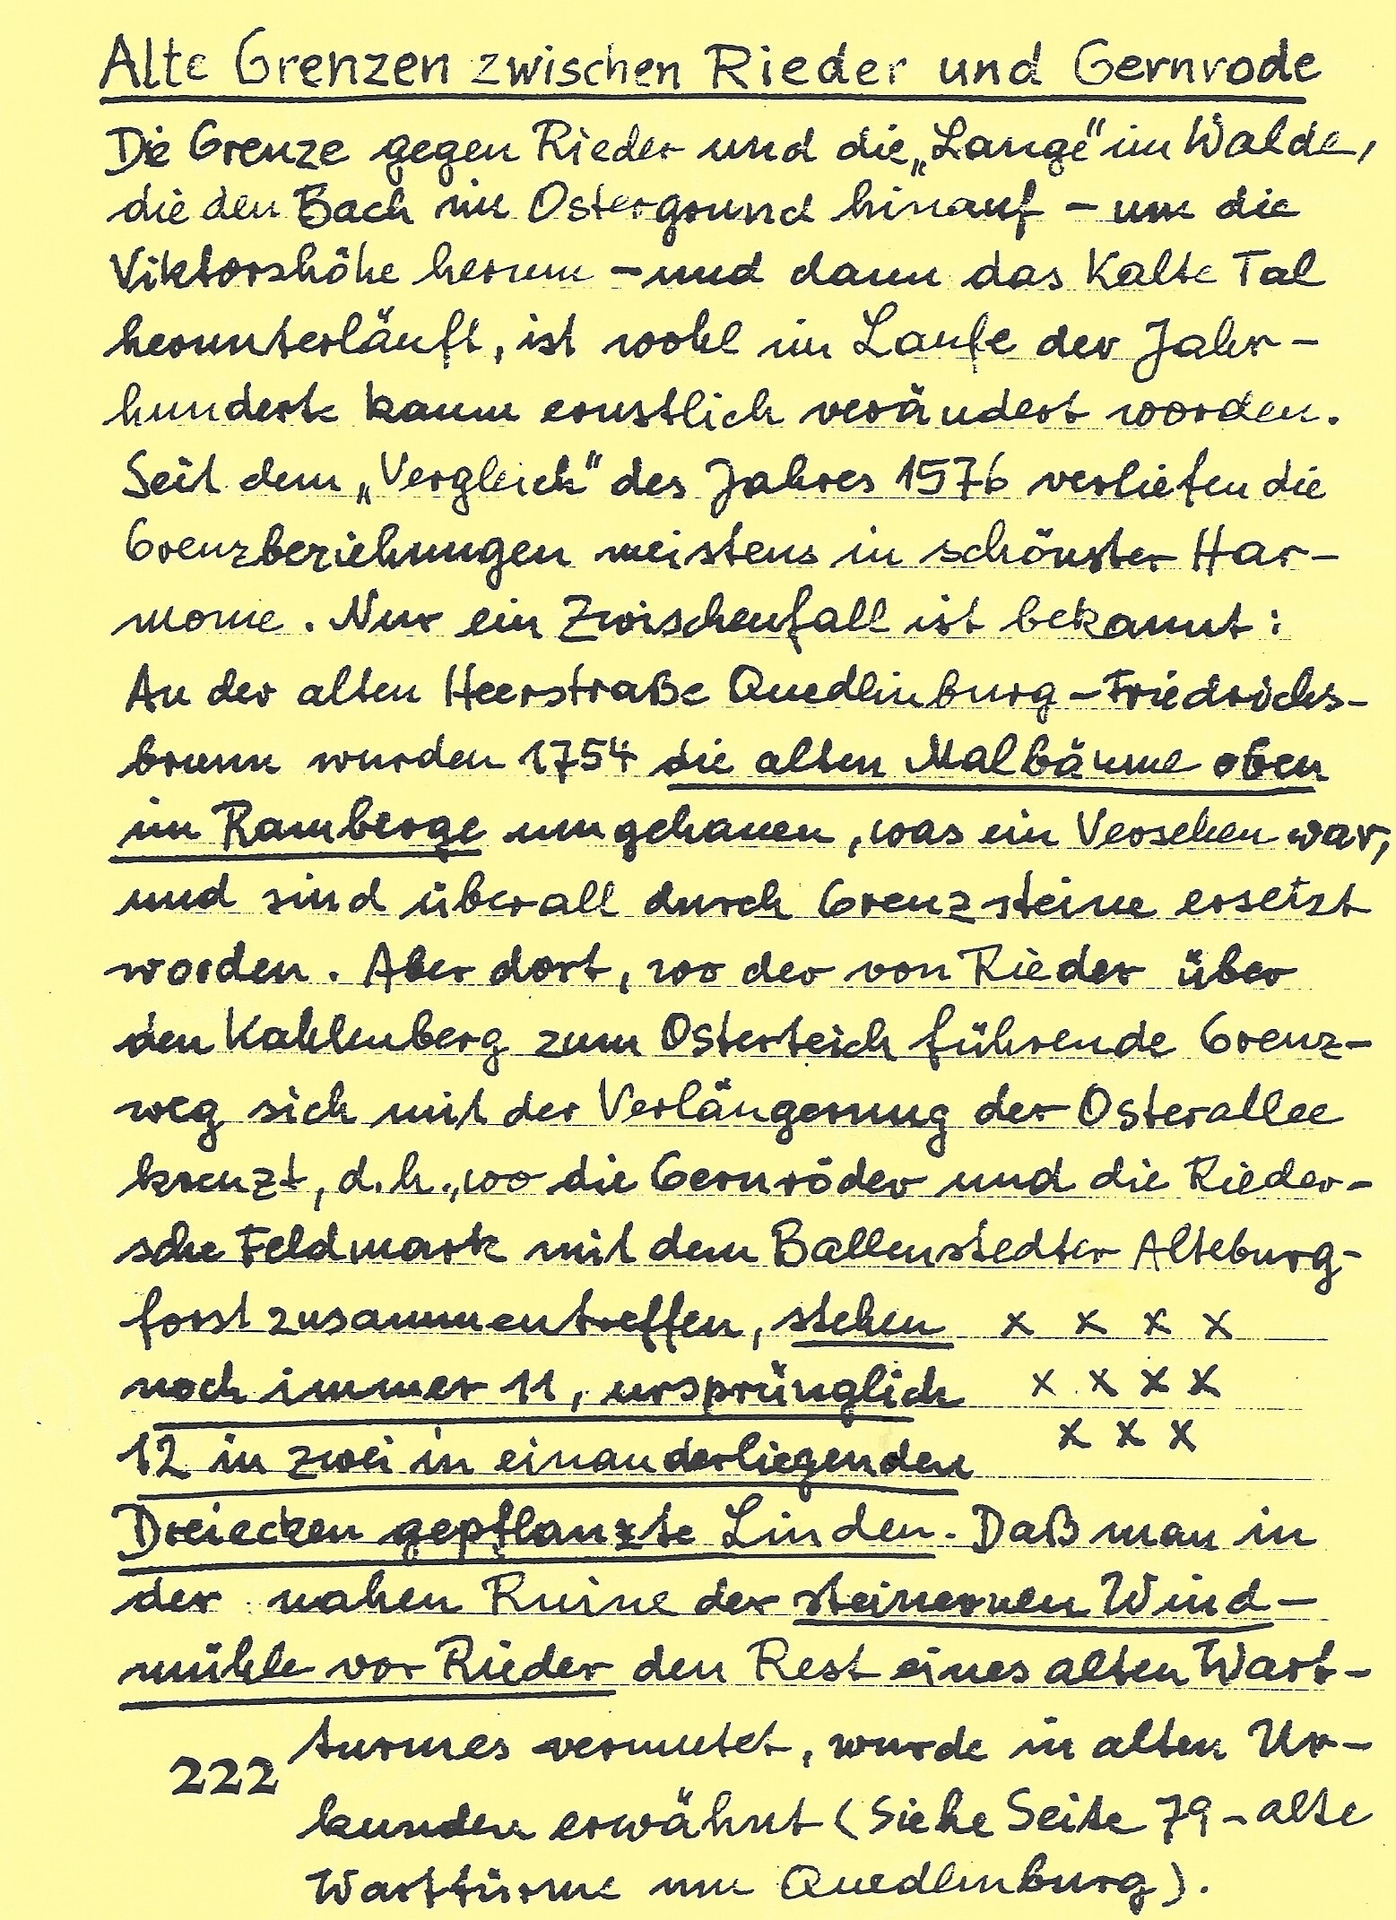 Alte Grenzen zwischen Rieder und Gernrode
Die Grenze gegen Rieder und die „Lange“ im Walde,
die den Bach im Ostergrund hinauf – um die
Viktorshöhe herum – und dann das Kalte Tal
herunterläuft, ist wohl im Laufe der Jahr-
hunderte kaum ernstlich verändert worden.
Seit dem „Vergleich“ des Jahres 1576 verliefen die
Grenzbeziehungen meistens in schönster Har-
monie. Nur ein Zwischenfall ist bekannt:
An der alten Heerstraße Quedlinburg – Friedrichs-
brunn wurden 1754 die alten Malbäume oben
im Ramberge umgehauen, was ein Versehen war,
und sind überall durch Grenzsteine ersetzt
worden. Aber dort, wo der von Rieder über
den Kahlenberg zum Osterteich führende Grenz-
weg sich mit der Verlängerung der Osterallee
kreuzt, d.h., wo die Gernröder und die Rieder-
sche Feldmark mit dem Ballenstedter Alteburg-
forst zusammentreffen, stehen x x x x
noch immer 11, ursprünglich x x x x
12 in zwei in einanderliegenden x x x
Dreiecken gepflanzte Linden. Daß man in
der nahen Ruine der steinernen Wind-
mühle vor Rieder den Rest eines alten Wart-
turmes vermutet, wurde in alten Ur-
222
kunden erwähnt (Siehe Seite 79 – alte
Warttürme um Quedlinburg).